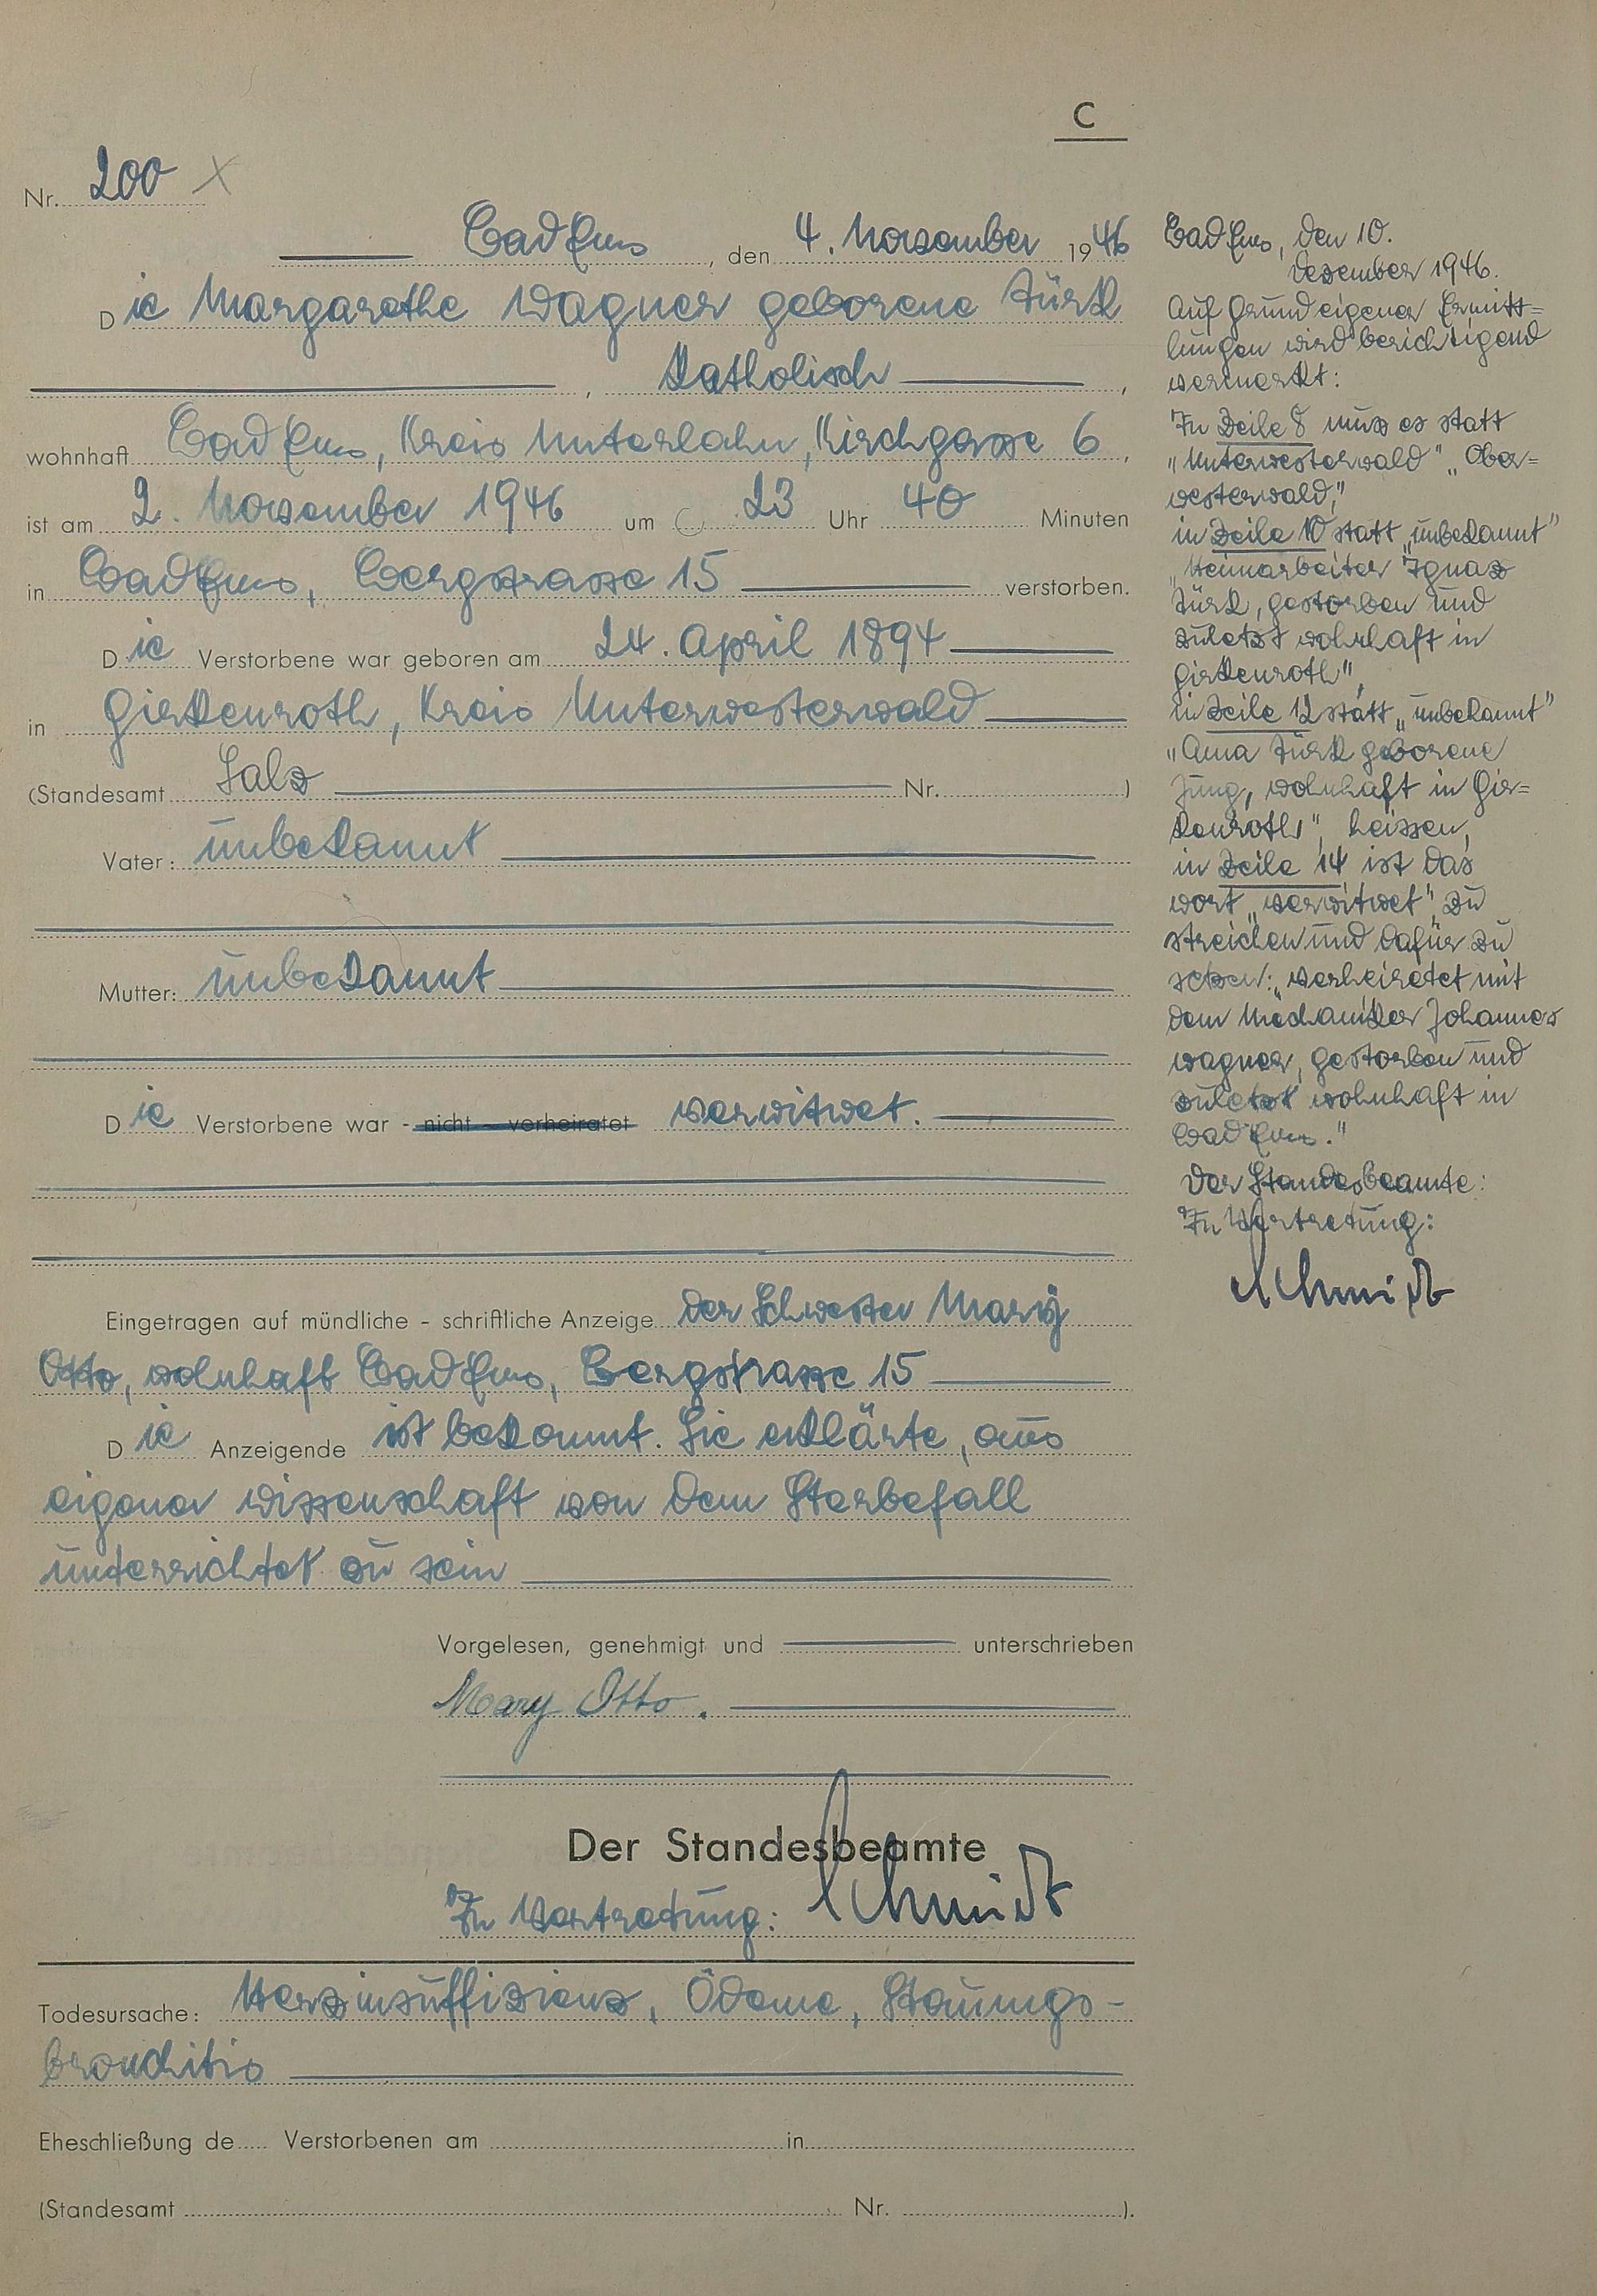 C
Nr. 200
Bad Ems, den 4. November 1946
Die Margarethe Wagner geborene Türk
, Katholisch,
wohnhaft Bad Ems, Kreis Unterlahn, Kirchgasse 6,
ist am 2. November 1946 um 23 Uhr 40 Minuten
in Bad Ems, Bergstrasse 15 verstorben.
Die Verstorbene war geboren am 24. April 1894
in Girkenroth, Kreis Unterwesterwald
(Standesamt Salz Nr. )
Vater: unbekannt
Mutter: unbekannt
Die Verstorbene war - nicht - verheiratet verwitwet.
Eingetragen auf mündliche - schriftliche Anzeige der Schwester Mary
Otto, wohnhaft Bad Ems, Bergstrasse 15
Die Anzeigende ist bekannt. Sie erklärte, aus
eigener Wissenschaft von dem Sterbefall
unterrichtet zu sein
Vorgelesen, genehmigt und unterschrieben
Mary Otto.
Der Standesbeamte
In Vertretung: Schmidt
Todesursache: Herzinsuffizienz, Ödeme, Stauungs-
bronchitis
Eheschließung de Verstorbenen am in
(Standesamt Nr. ).
Bad Ems, den 10.
Dezember 1946.
Auf Grund eigener Ermitt=
lungen wird berichtigend
vermerkt:
In Zeile 8 muss es statt
„Unterwesterwald" „Ober=
westerwald,"
in Zeile 10 statt „unbekannt"
„Heimarbeiter Ignaz
Türk, gestorben und
zuletzt wohnhaft in
Girkenroth",
in Zeile 12 statt „unbekannt"
„Anna Türk geborene
Jung, wohnhaft in Gir=
kenroth", heissen,
in Zeile 14 ist das
Wort „verwitwet" zu
streichen und dafür zu
setzen: „verheiratet mit
dem Mechaniker Johannes
Wagner, gestorben und
zuletzt wohnhaft in
Bad Ems."
Der Standesbeamte:
In Vertretung:
Schmidt